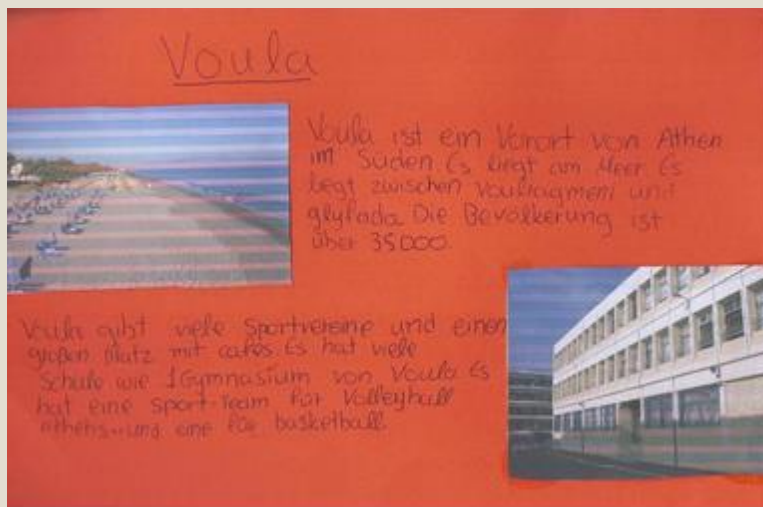 Voula
Voula ist ein Vorort von Athen
im Süden. Es liegt am Meer Es
liegt zwischen Vouliagmeni und
glyfada. Die Bevölkerung ist
über 35000.
Voula gibt viele Sportvereine und einen
großen Platz mit cafes Es hat viele
Schule wie 1Gymnasium von Voula Es
hat eine Sport-Team für Volleyball
und eine für basketball